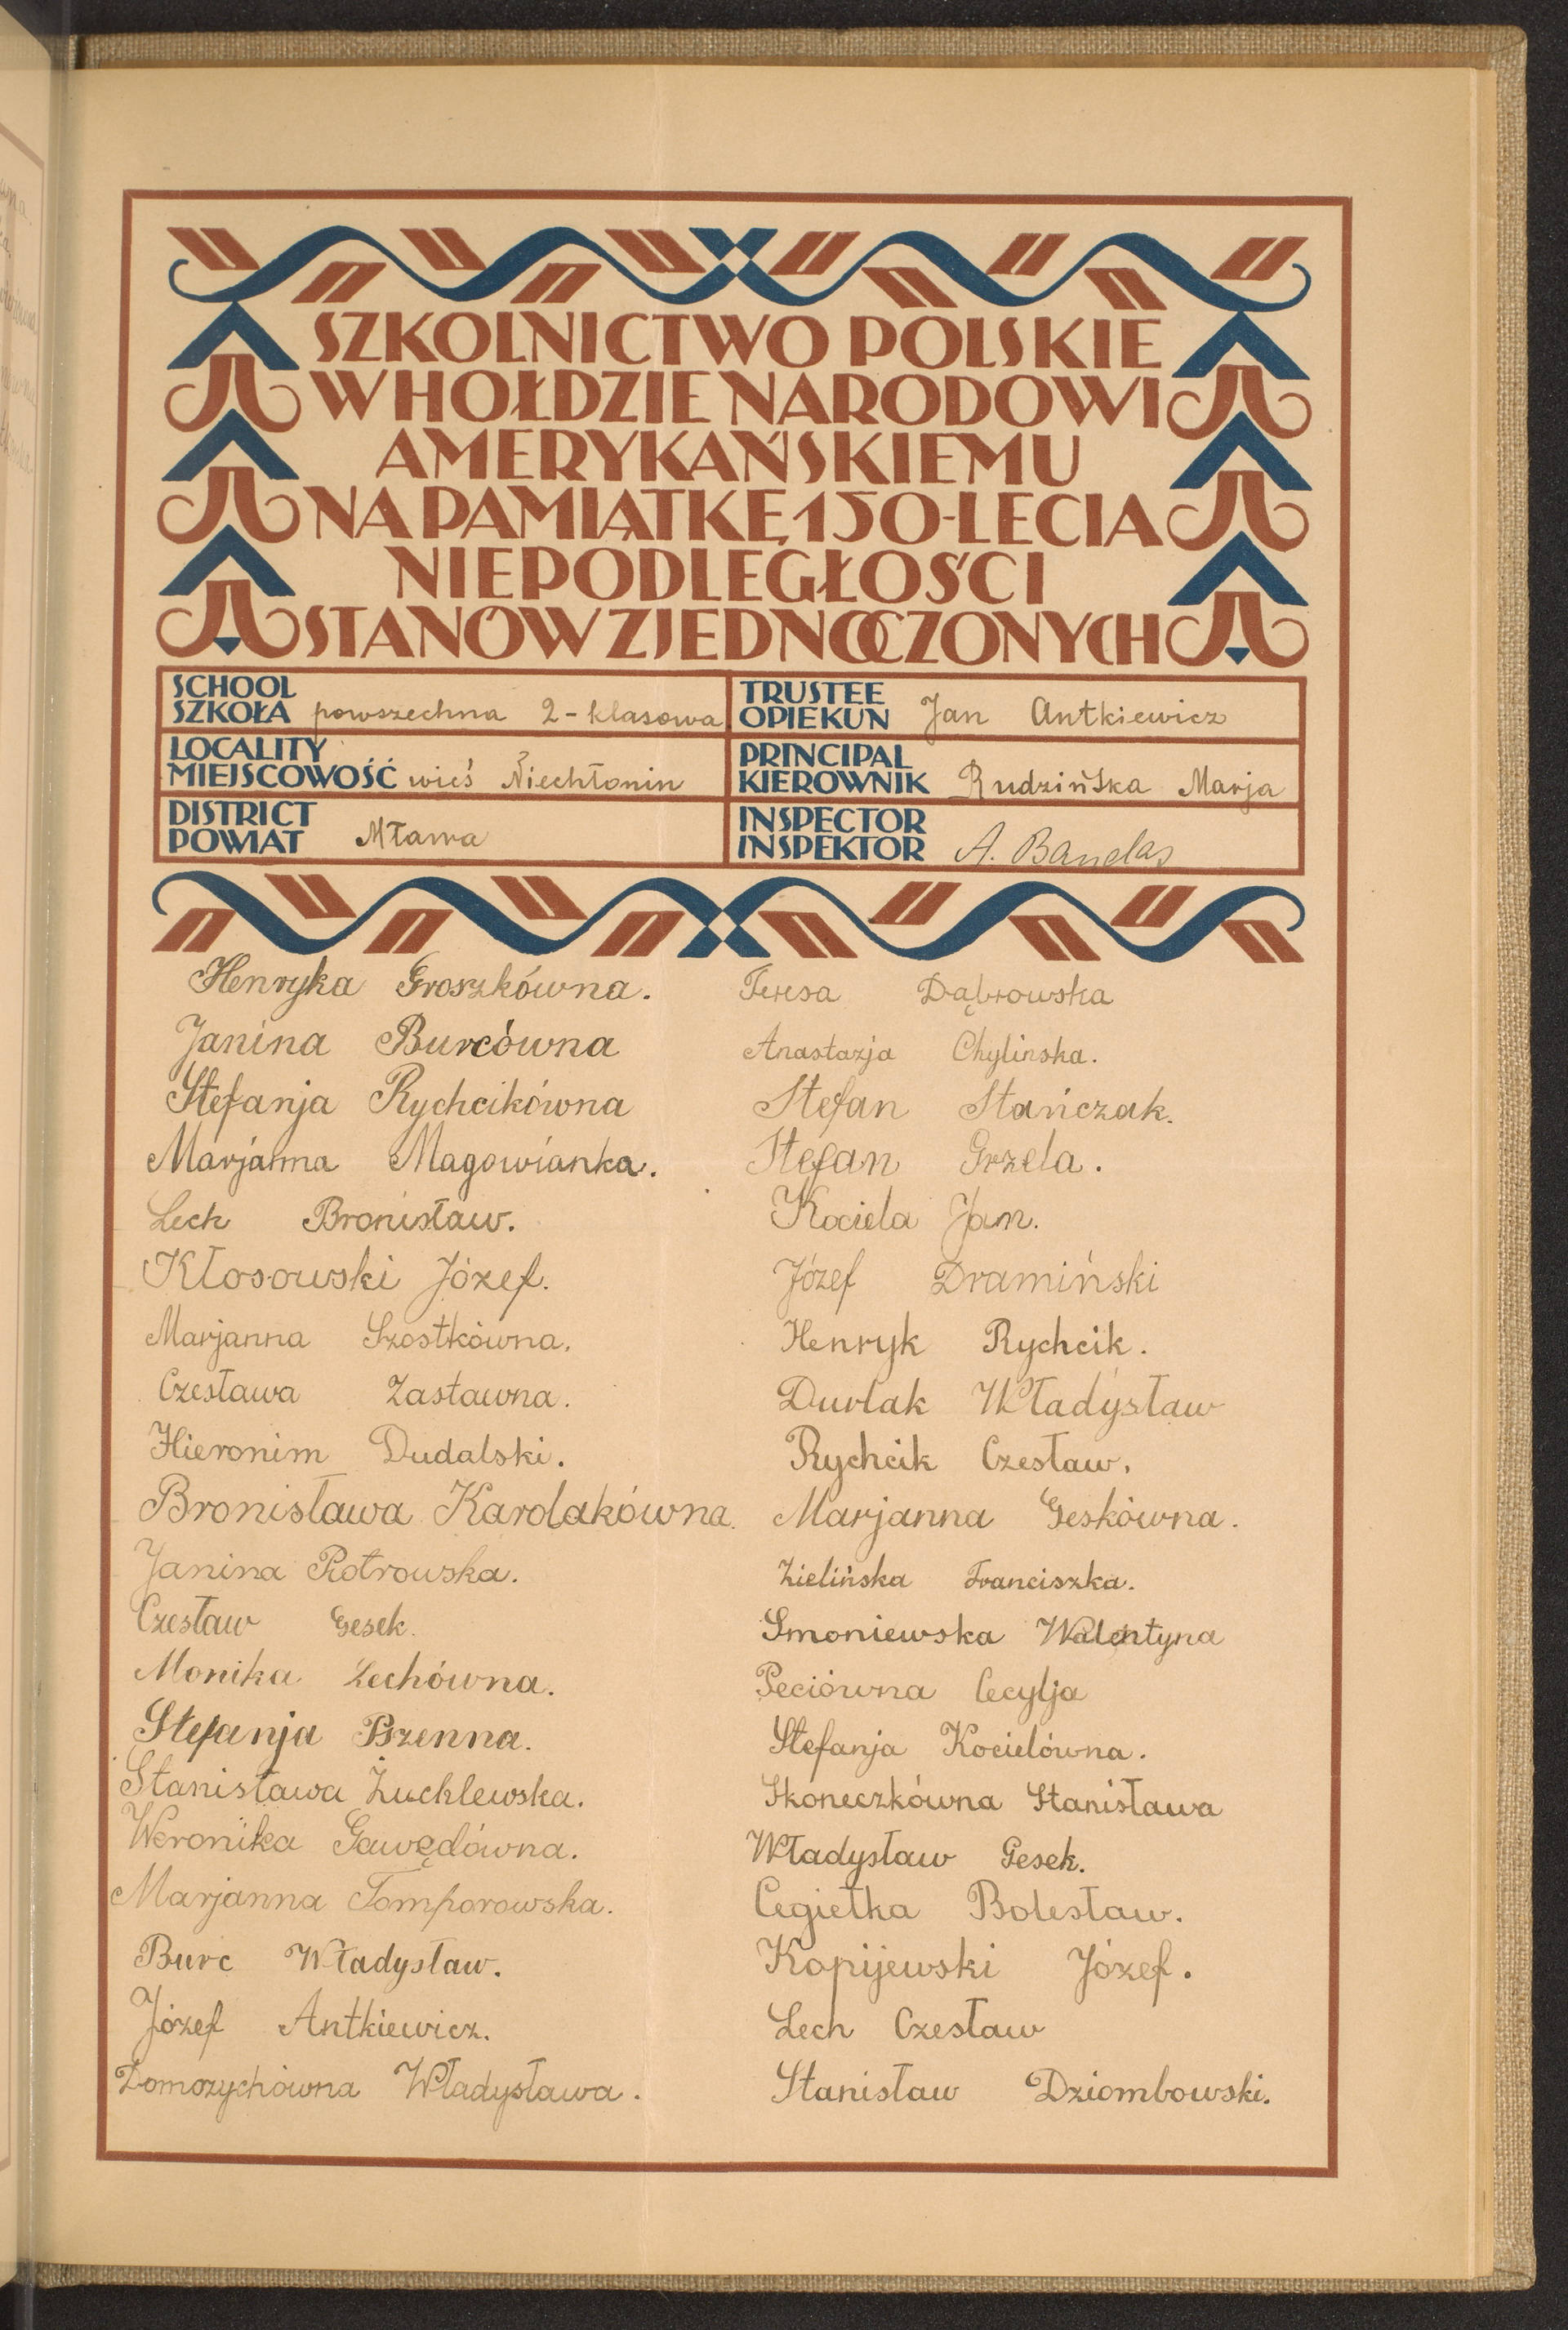 SZKOLNICTWO POLSKIE
W HOŁDZIE NARODOWI
AMERYKAŃSKIEMU
NA PAMIĄTKĘ 150-LECIA
NIEPODLEGŁOŚCI
STANÓW ZJEDNOCZONYCH
SCHOOL
SZKOŁA powszechna 2-klasowa
TRUSTEE
OPIEKUN Jan Antkiewicz
LOCALITY
MIEJSCOWOŚĆ wieś Niechłonin
PRINCIPAL
KIEROWNIK Rudzińska Marja
DISTRICT
POWIAT Mława
INSPECTOR
INSPEKTOR A. Bandas
Henryka Groszkówna.
Janina Burcówna
Stefanja Rychcikówna
Marjanna Magowianka.
Lech Bronisław.
Kłosowski Józef.
Marjanna Szostkówna.
Czesława Zastawna.
Hieronim Dudalski.
Bronisława Karolakówna.
Janina Piotrowska.
Czesław Gesek.
Monika Lechówna.
Stefanja Pszenna.
Stanisława Żuchlewska.
Weronika Gawędówna.
Marjanna Tomporowska.
Burc Władysław.
Józef Antkiewicz.
Domozychówna Władysława.
Teresa Dąbrowska
Anastazja Chylinska.
Stefan Stańczak.
Stefan Grzela.
Kociela Jan.
Józef Dramiński
Henryk Rychcik.
Durlak Władysław
Rychcik Czesław.
Marjanna Geskówna.
Zielińska Franciszka.
Smoniewska Walentyna
Peciówna Cecylja
Stefanja Kocielówna.
Skoneczkówna Stanisława
Władysław Gesek.
Cegiełka Bolesław.
Kopijewski Józef.
Lech Czesław
Stanisław Dziombowski.